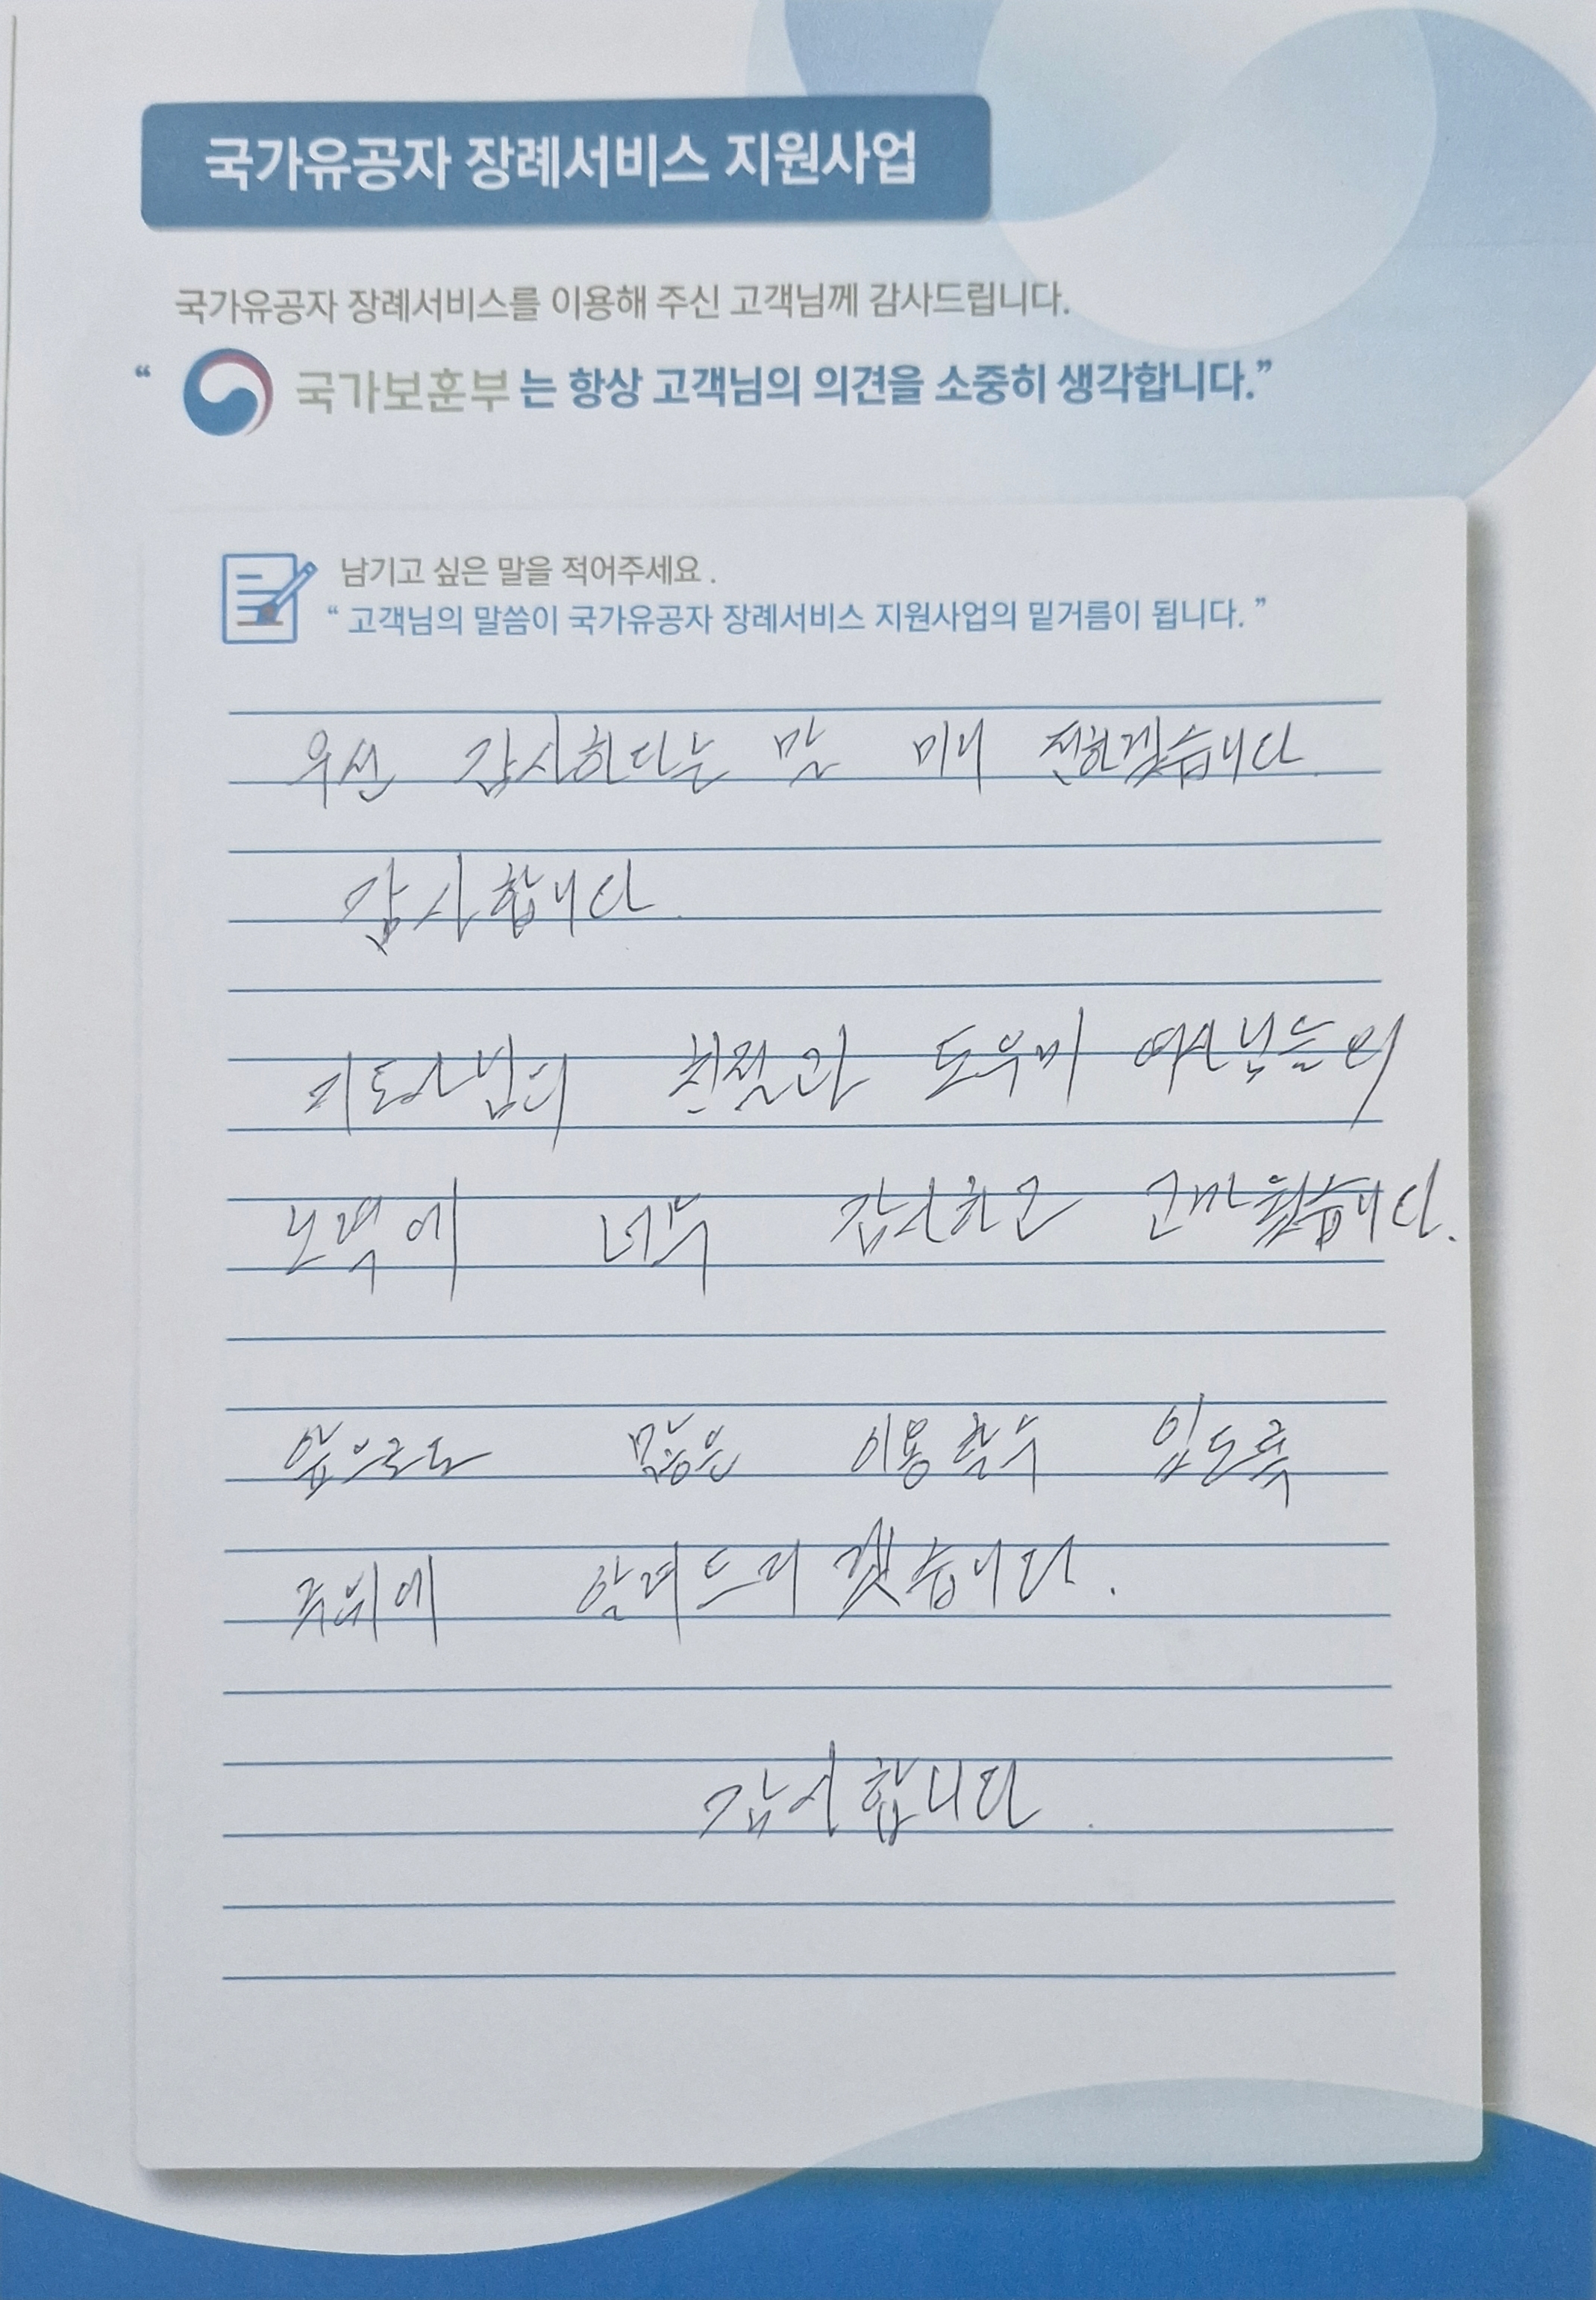 국가유공자 장례서비스 지원사업
국가유공자 장례서비스를 이용해 주신 고객님께 감사드립니다.
“ 국가보훈부는 항상 고객님의 의견을 소중히 생각합니다.”
남기고 싶은 말을 적어주세요 .
“ 고객님의 말씀이 국가유공자 장례서비스 지원사업의 밑거름이 됩니다. ”
우선 감사하다는 말 미리 전하겠습니다.
감사합니다.
지도사님의 친절과 도우미 여사님들의
노력에 너무 감사하고 고마웠습니다.
앞으로도 많은 이용할수 있도록
주위에 알려드리겠습니다.
감사합니다.